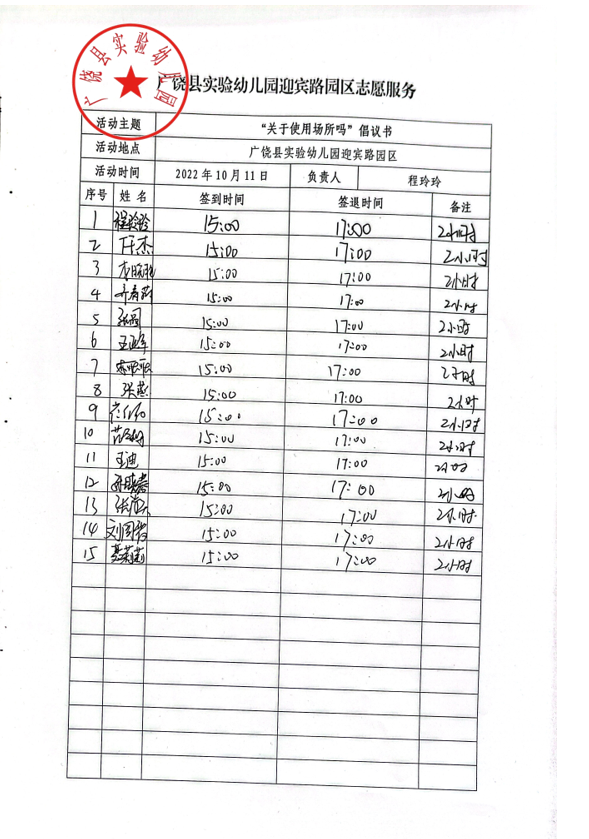 广饶县实验幼儿园
广饶县实验幼儿园迎宾路园区志愿服务
活动主题 “关于使用场所吗”倡议书
活动地点 广饶县实验幼儿园迎宾路园区
活动时间 2022年10月11日 负责人 程玲玲
序号 姓名 签到时间 签退时间 备注
1 程玲玲 15:00 17:00 2小时
2 任杰 15:00 17:00 2小时
3 15:00 17:00 2小时
4 15:00 17:00 2小时
5 15:00 17:00 2小时
6 15:00 17:00 2小时
7 15:00 17:00 2小时
8 张燕 15:00 17:00 2小时
9 15:00 17:00 2小时
10 15:00 17:00 2小时
11 王迪 15:00 17:00 2小时
12 15:00 17:00 2小时
13 15:00 17:00 2小时
14 15:00 17:00 2小时
15 15:00 17:00 2小时